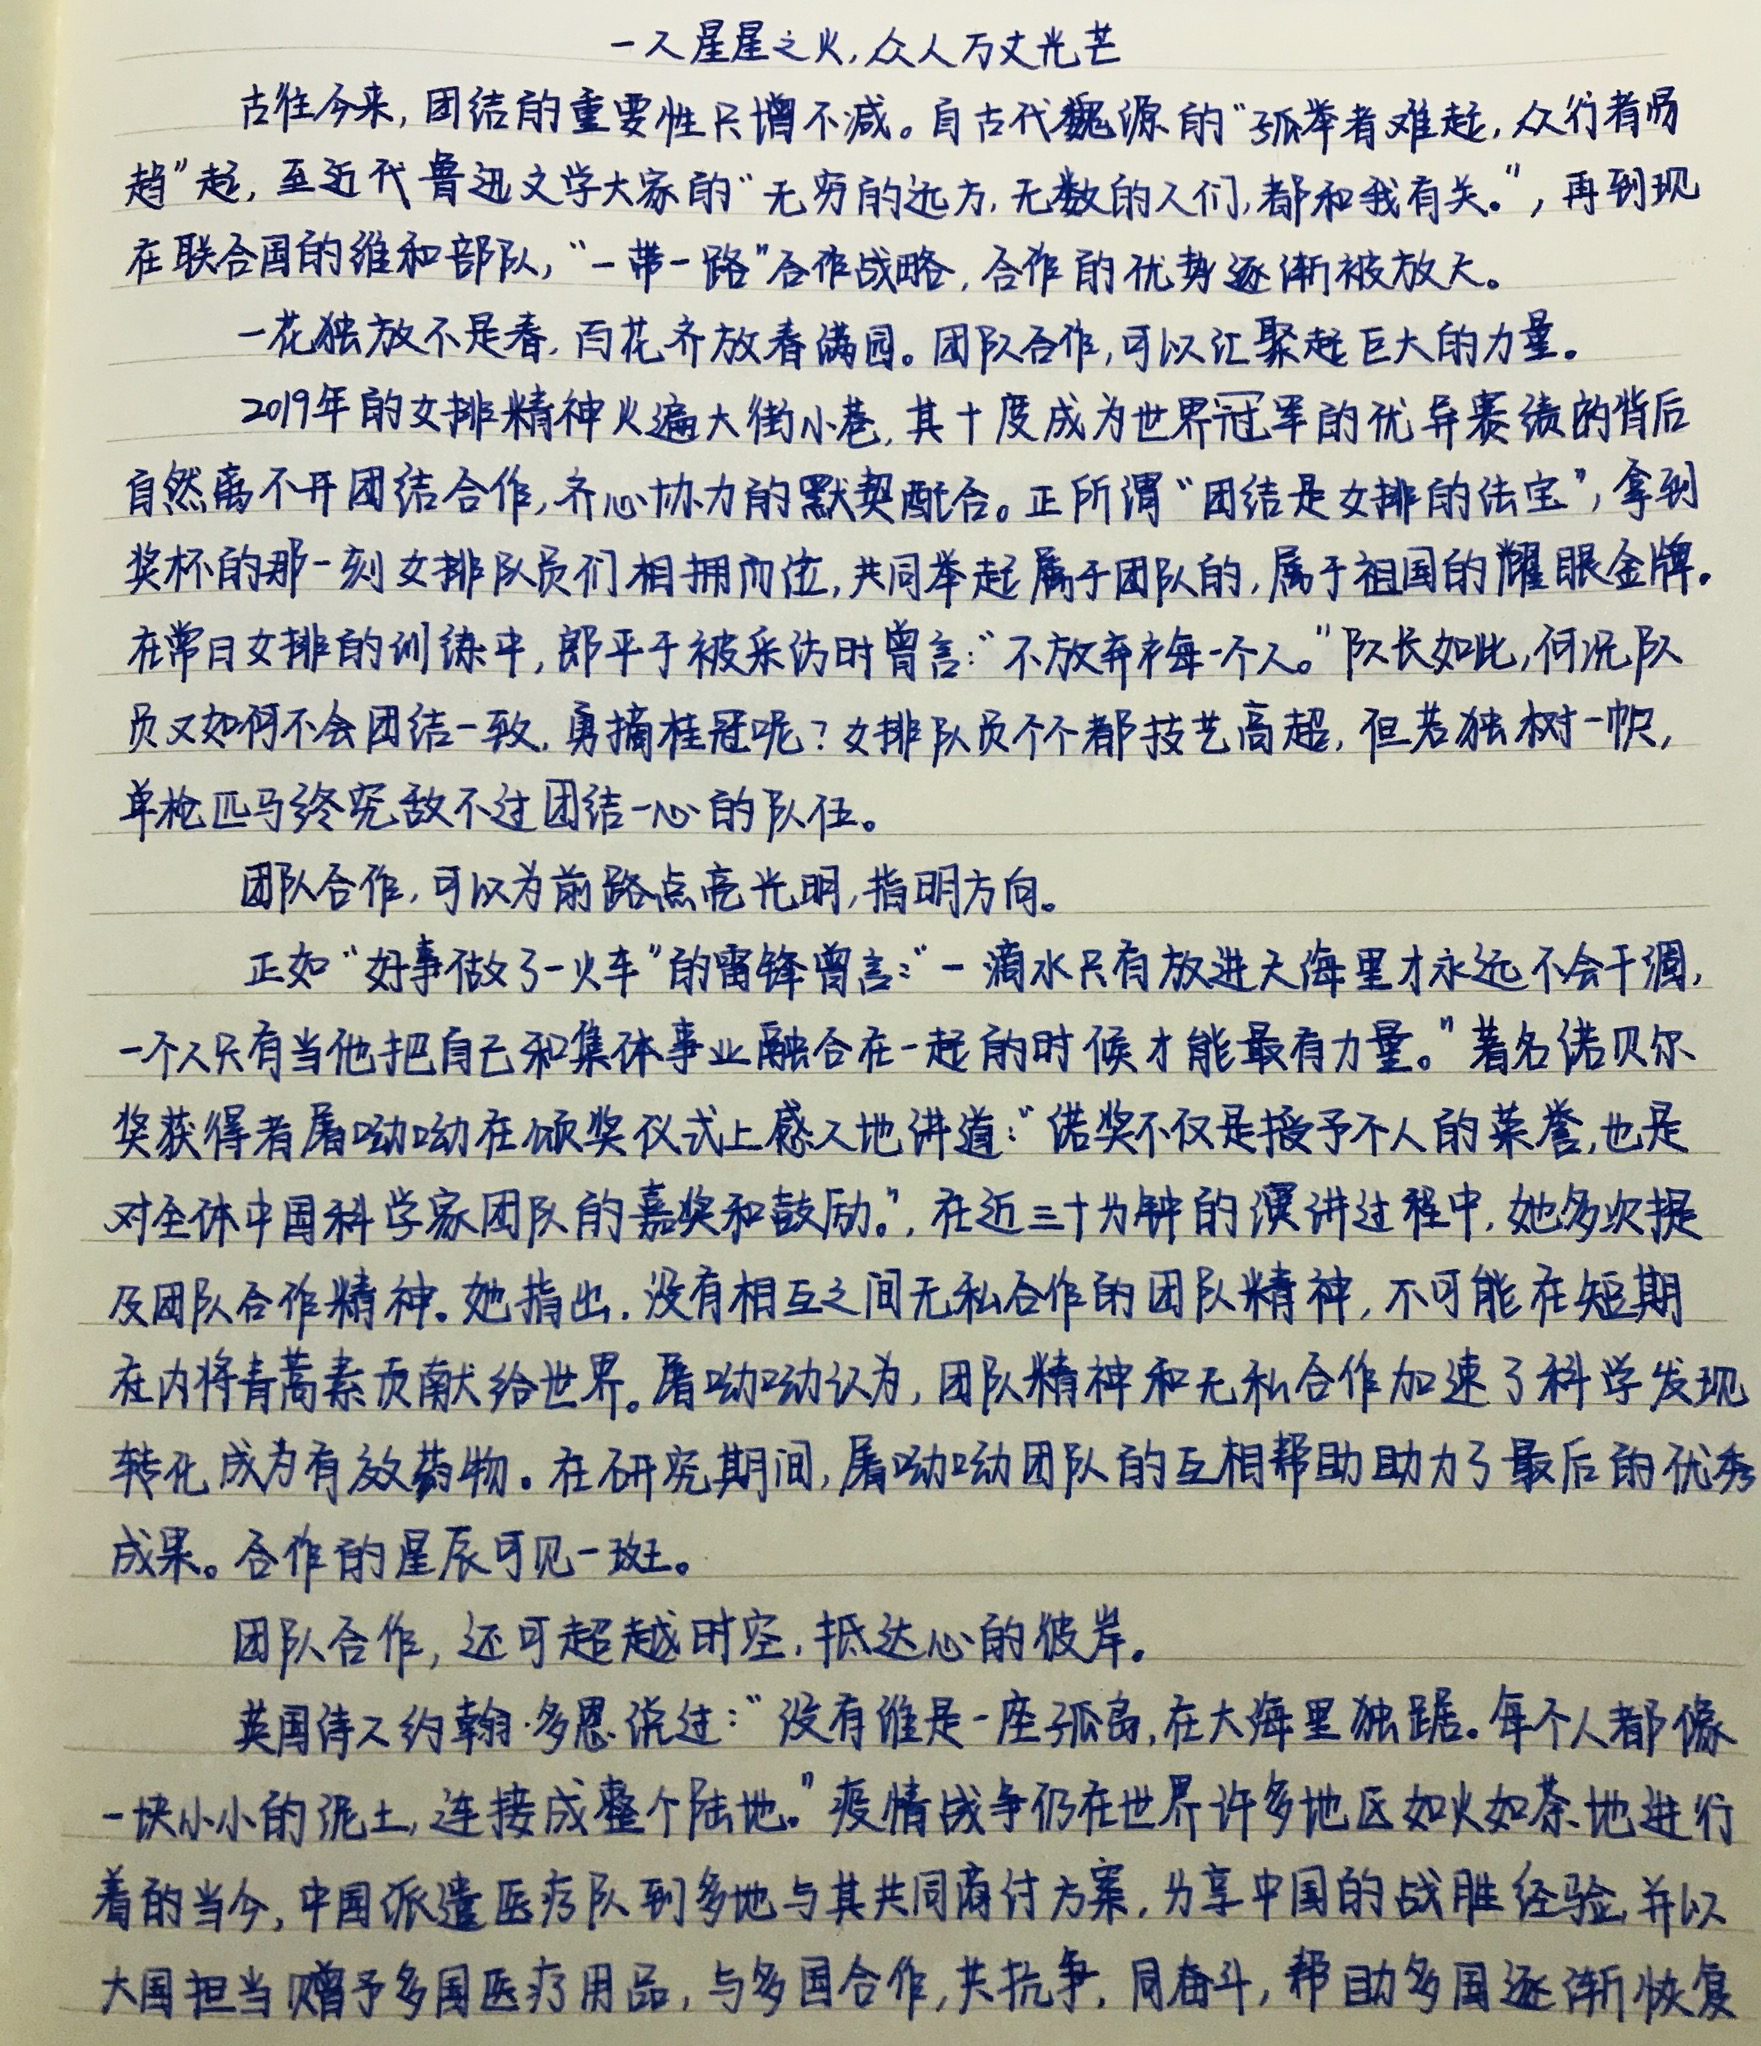 一人星星之火,众人万丈光芒
古往今来,团结的重要性只增不减。自古代魏源的“孤举者难起,众行者易
趋”起,至近代鲁迅文学大家的“无穷的远方,无数的人们,都和我有关。”,再到现
在联合国的维和部队,“一带一路”合作战略,合作的优势逐渐被放大。
一花独放不是春,百花齐放春满园。团队合作,可以汇聚起巨大的力量。
2019年的女排精神火遍大街小巷,其十度成为世界冠军的优异赛绩的背后
自然离不开团结合作,齐心协力的默契配合。正所谓“团结是女排的法宝”,拿到
奖杯的那一刻女排队员们相拥而泣,共同举起属于团队的,属于祖国的耀眼金牌。
在常日女排的训练中,郎平于被采访时曾言:“不放弃每一个人。”队长如此,何况队
员又如何不会团结一致,勇摘桂冠呢?女排队员个个都技艺高超,但若独树一帜,
单枪匹马终究敌不过团结一心的队伍。
团队合作,可以为前路点亮光明,指明方向。
正如“好事做了一火车”的雷锋曾言:“一滴水只有放进大海里才永远不会干涸,
一个人只有当他把自己和集体事业融合在一起的时候才能最有力量。”著名诺贝尔
奖获得者屠呦呦在颁奖仪式上感人地讲道:“诺奖不仅是授予个人的荣誉,也是
对全体中国科学家团队的嘉奖和鼓励。”,在近三十分钟的演讲过程中,她多次提
及团队合作精神。她指出,没有相互之间无私合作的团队精神,不可能在短期
在内将青蒿素贡献给世界。屠呦呦认为,团队精神和无私合作加速了科学发现
转化成为有效药物。在研究期间,屠呦呦团队的互相帮助助力了最后的优秀
成果。合作的星辰可见一斑。
团队合作,还可超越时空,抵达心的彼岸。
英国诗人约翰·多恩说过:“没有谁是一座孤岛,在大海里独踞。每个人都像
一块小小的泥土,连接成整个陆地。”疫情战争仍在世界许多地区如火如荼地进行
着的当今,中国派遣医疗队到多地与其共同商讨方案,分享中国的战胜经验,并以
大国担当赠予多国医疗用品,与多国合作,共抗争,同奋斗,帮助多国逐渐恢复